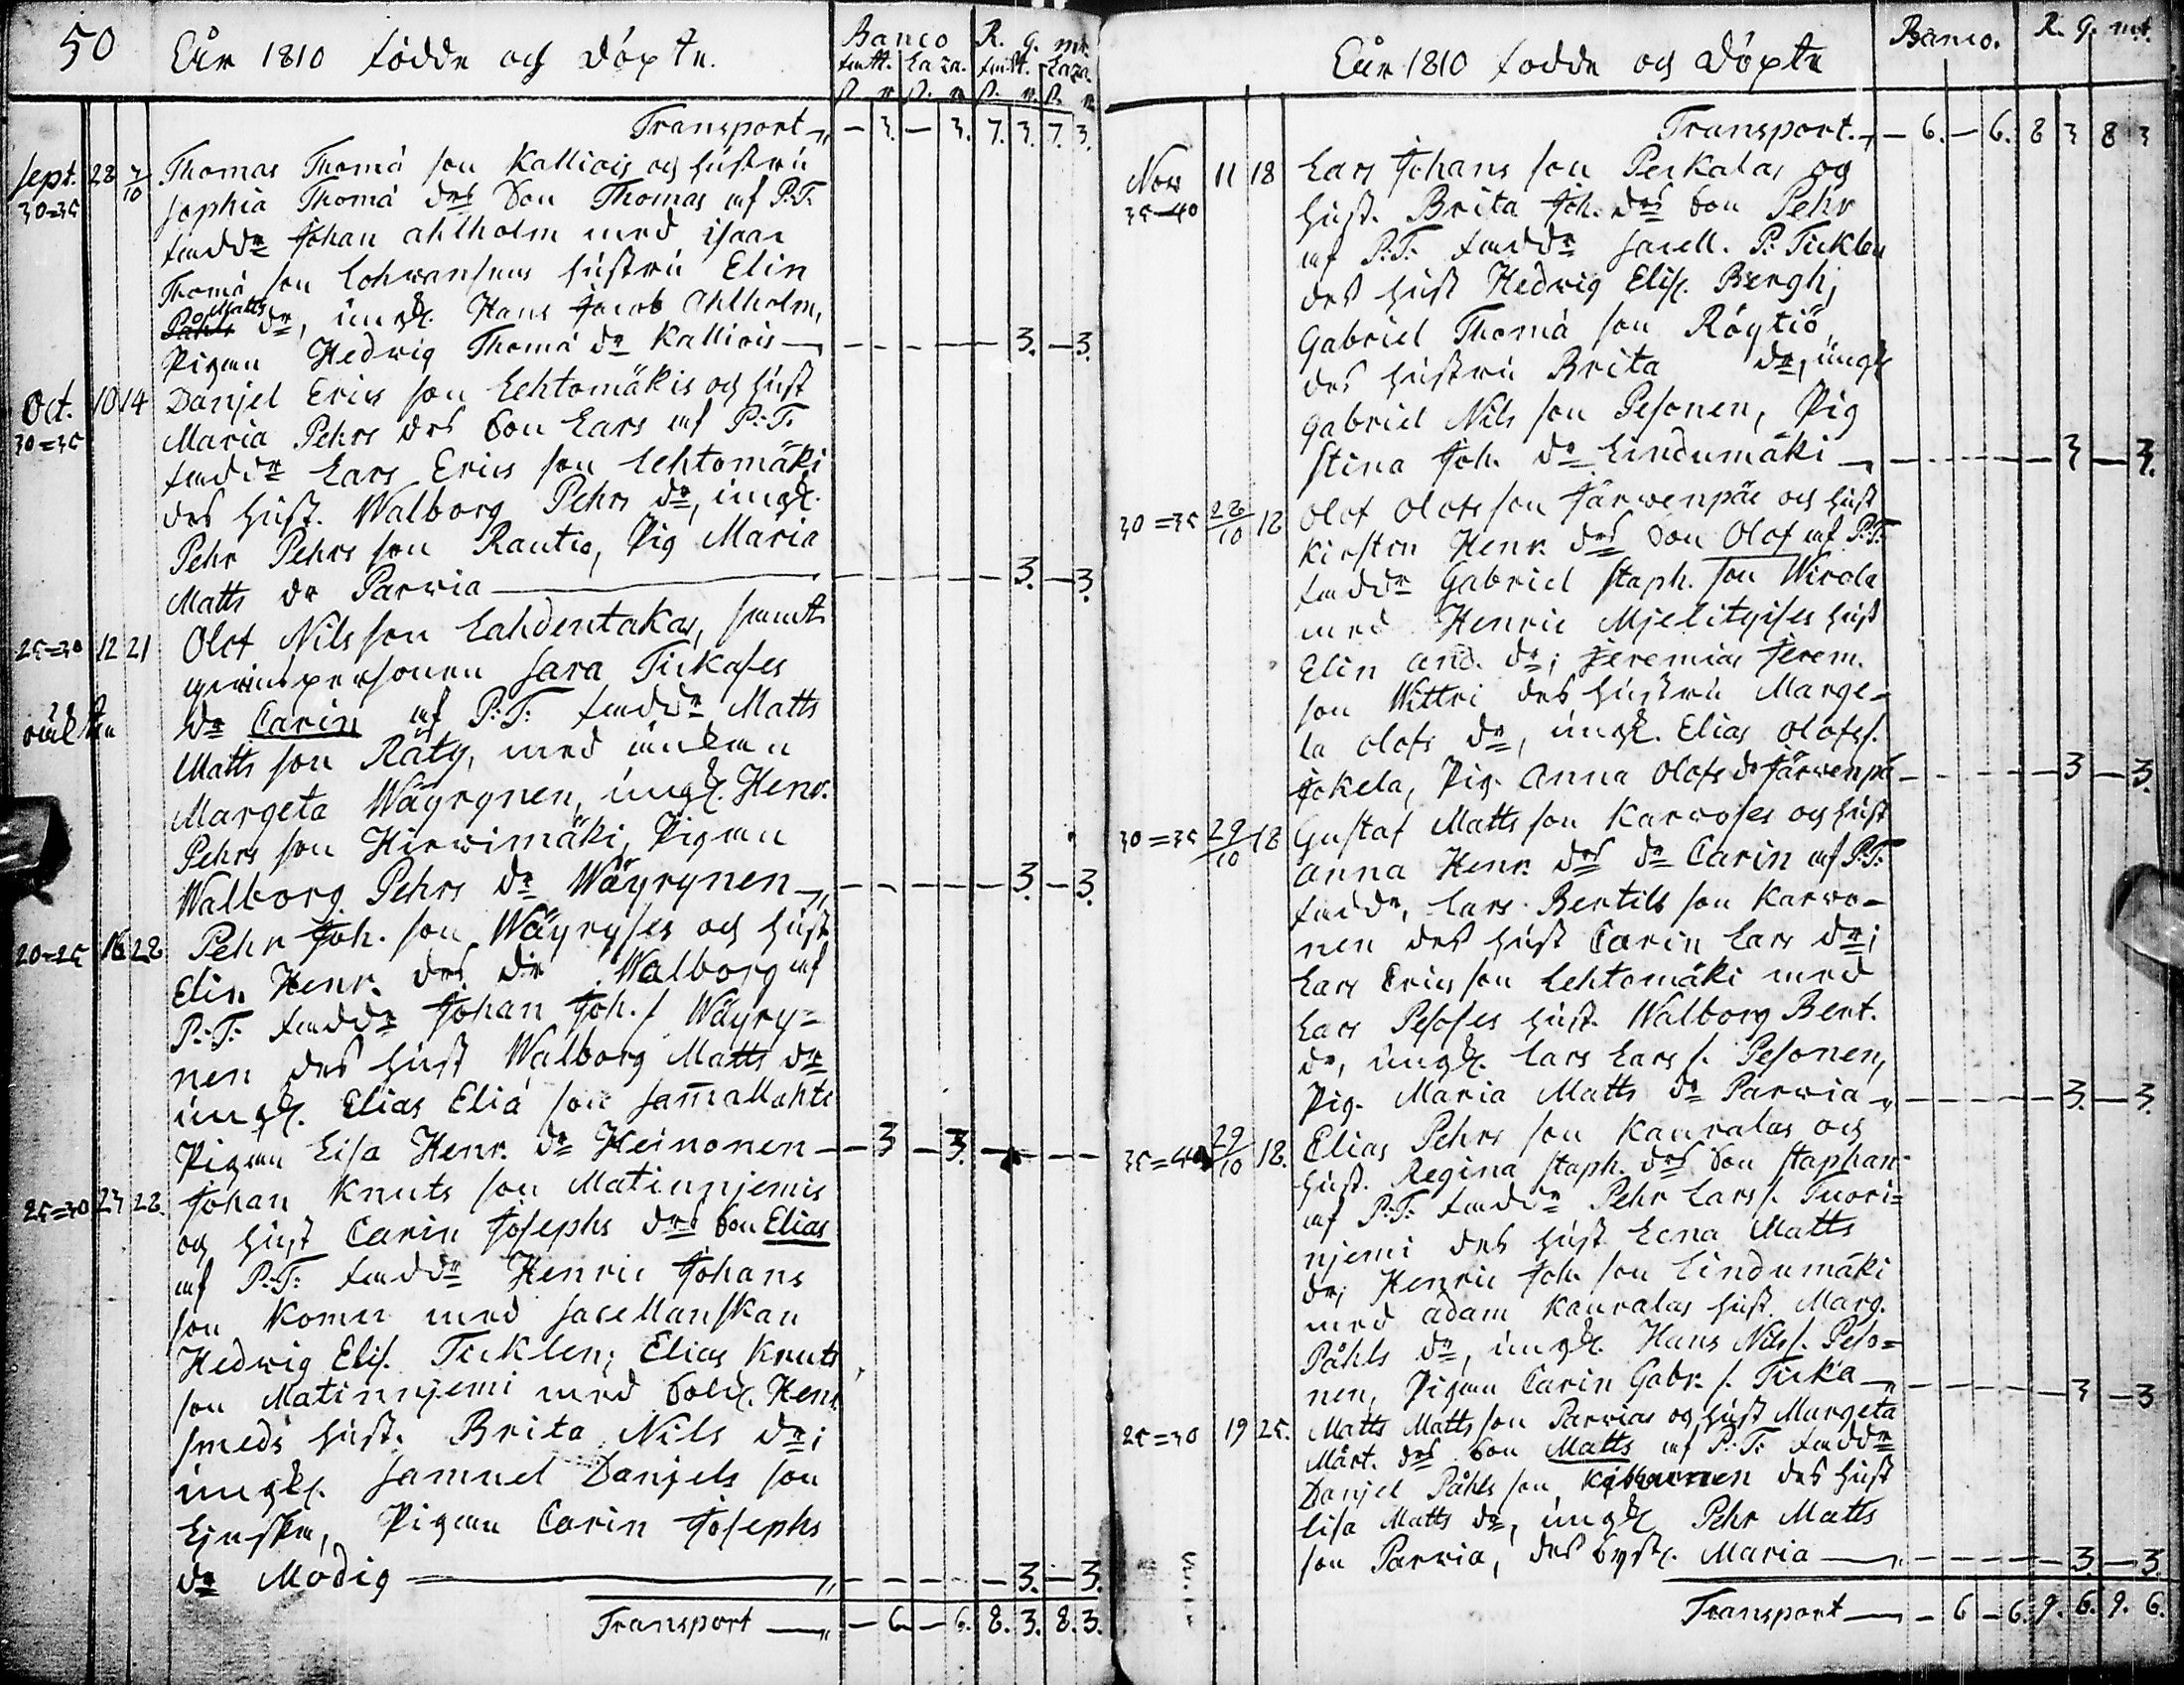 50 Åhr 1810 födde och döpte.
Banco R. g. mt.
fatt. Cassa. fatt. Cassa.
Transport — 3. — 3. 7. 3. 7. 3.
Sept. 28 7/10 Thomas Thomæ son Kalliois och hustru
30=35 Sophia Thomæ drs Son Thomas af P:T.
fadde Johan Ahlholm med Isaac
Thomæ son Lohwansuus hustru Elin
Matts
dr, ungk. Hans Jacob Ahlholm,
Pigan Hedwig Thomæ dr Kalliois — 3. — 3.
Oct. 10 14 Danjel Erics son Lehtomäkis och hust
30=35 Maria Pehrs drs Son Lars af P:T.
fadder Lars Erics son Lehtomäki
des hust. Walborg Pehrs dr, ungk.
Pehr Pehrs son Rautio, Pig Maria
Matts dr Parvia — 3. — 3.
25=30 12 21 Olof Nils son Lahdentakas, samt
qwinspersonen Sara Tickases
oäkta dr Carin af P:T: fadder Matts
Matts son Räty, med enkan
Margeta Wäyrynen, ungk. Henr.
Pehrs son Hirwimäki, Pigan
Walborg Pehrs dr Wäyrynen — 3. — 3.
20=25 16 28 Pehr Joh. son Wäyryses och hust
Elin Henr. drs dr Walborg af
P:T: fadder Johan Joh. s Wäyry=
nen des hust Walborg Matts dr
ungk. Elias Eliæ son Sammallahti
Pigan Lisa Henr. dr Heinonen — 3 — 3.
25=30 23 28. Johan Knuts son Matinnjemis
och hust Carin Josephs drs Son Elias
af P:T: fadder Henric Johans
son Komu med Sacellanskan
Hedwig Elis. Ticklen; Elias Knuts
son Matinnjemi med Sold. Henr.
Smeds hust. Brita Nils dr;
ungk. Samuel Danjels son
Pigan Carin Josephs
dr Modig — 3. — 3.
Transport — 6 — 6. 8. 3. 8. 3.
Åhr 1810 födde och döpte
Banco. R. g. mt.
Transport. — 6. — 6. 8 3 8 3
Nov 11 18 Lars Johans son Perkalas och
35—40 hust. Brita Joh. drs Son Pehr
af P:T: fadder Sacell. P: Ticklen
des hust Hedwig Elis. Bergh;
Gabriel Thomæ son Röytiö
des hustru Brita dr, ungk
Gabriel Nils son Pesonen, Pig
Stina Joh. dr Lindumäki — 3 — 3.
30=35 28/10 18 Olof Olofs son Järwenpäs och hust
Kirstin Henr. drs Son Olof af P:T:
fadder Gabriel Staph. son Wirola
med Henric Mjelityises hust
Elin And. dr; Jeremias Jerem.
son Wittri des hustru Marge=
ta Olofs dr, ungk. Elias Olofs s.
Jokela, Pig. Anna Olofs dr Järwenpä — 3 — 3.
30=35 29/10 18 Gustaf Matts son Karwoses och hust
Anna Henr. drs dr Carin af P:T:
fadder, Lars Bertils son Karwo-
nen des hust Carin Lars dr;
Lars Erics son Lehtomäki med
Lars Pesoses hust. Walborg Bert.
dr, ungk. Lars Lars s. Pesonen,
Pig. Maria Matts dr Parvia — 3. — 3.
35=40 29/10 18. Elias Pehrs son Kauralas och
hust. Regina Staph. drs Son Staphan
af P:T: fadder Pehr Lars s. Tuori=
njemi des hust Lena Matts
dr; Henric Joh. son Lindumäki
med Adam Kauralas hust. Marg.
Påhls dr, ungk. Hans Nils s. Peso=
nen, Pigan Carin Gabr. s. Ticka — 3 — 3
25=30 19 25. Matts Matts son Parvias och hust Margeta
Mårt. drs Son Matts af P:T: fadder
Danjel Påhls son des hust
Lisa Matts dr, ungk Pehr Matts
son Parvia, des Syst. Maria — 3. — 3.
Transport — 6 — 6. 9. 6. 9. 6.